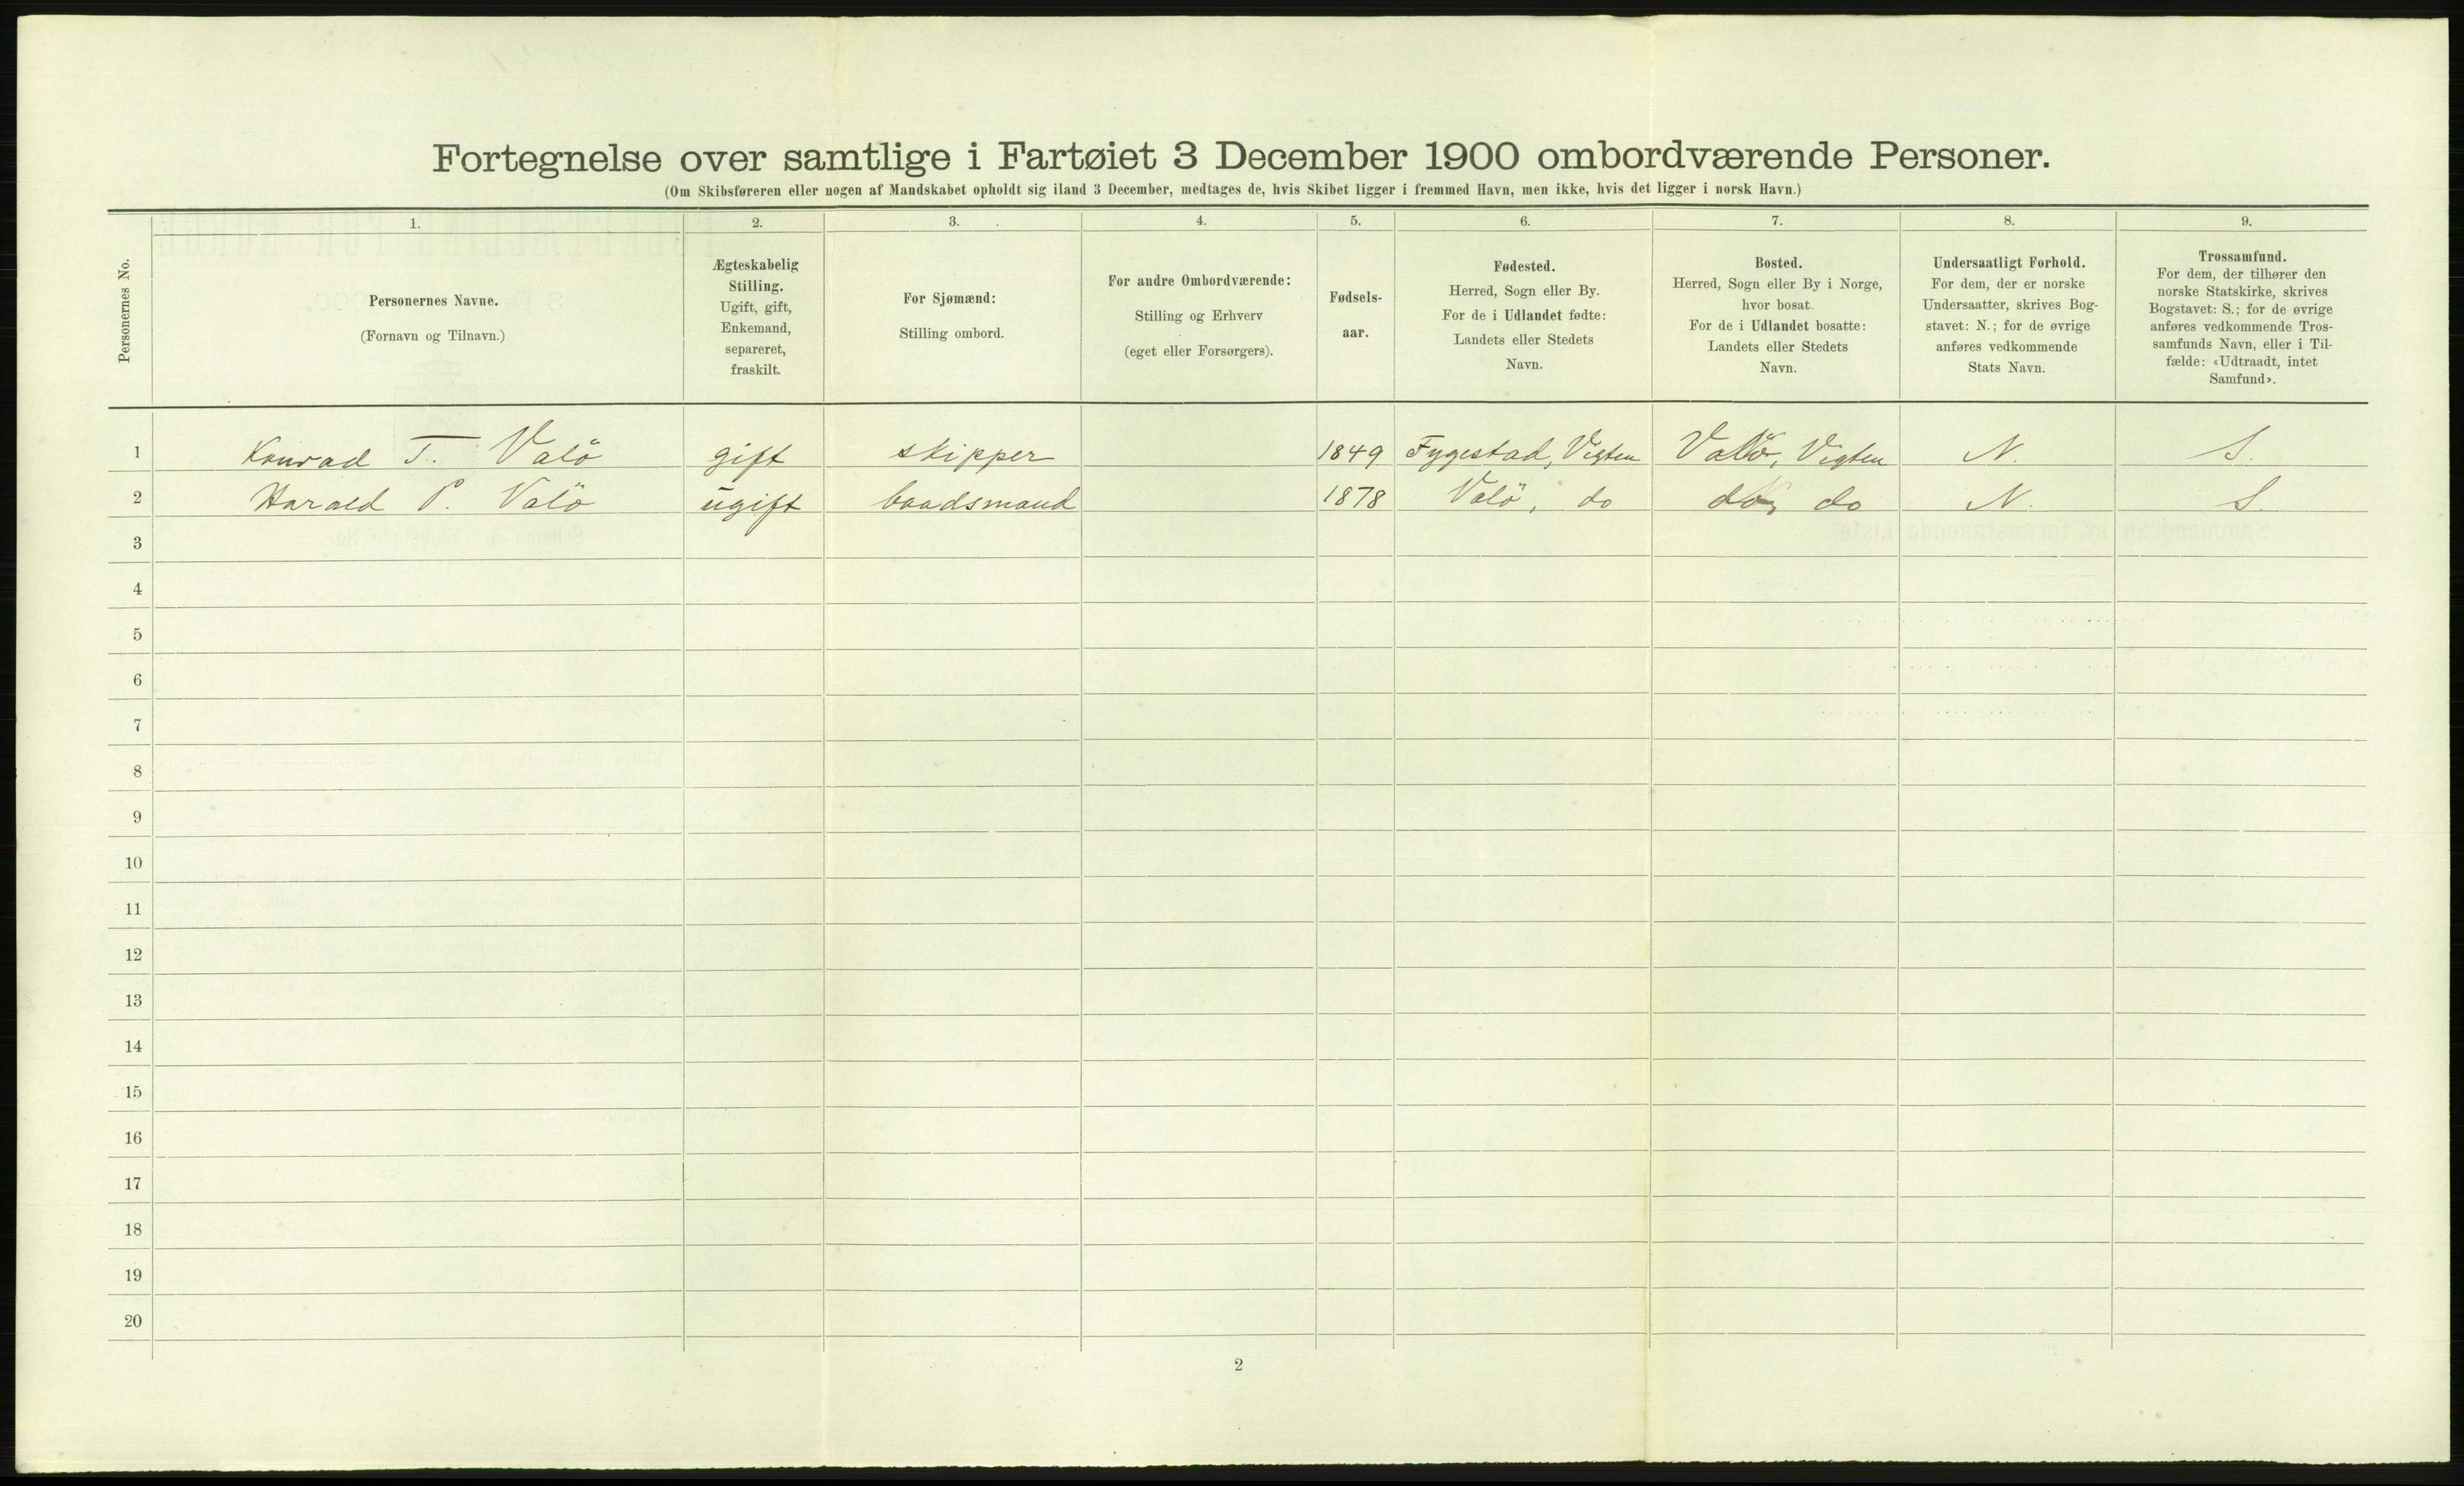 Fortegnelse over samtlige i Fartøiet 3 December 1900 ombordværende Personer.
(Om Skibsføreren eller nogen af Mandskabet opholdt sig iland 3 December, medtages de, hvis Skibet ligger i fremmed Havn, men ikke, hvis det ligger i norsk Havn.)
Personernes No.
1.
Personernes Navne.
(Fornavn og Tilnavn.)
2.
Ægteskabelig
Stilling.
Ugift, gift,
Enkemand,
separeret,
fraskilt.
3.
For Sjømænd:
Stilling ombord.
4.
For andre Ombordværende:
Stilling og Erhverv
(eget eller Forsørgers).
5.
Fødsels-
aar.
6.
Fødested.
Herred, Sogn eller By.
For de i Udlandet fødte:
Landets eller Stedets
Navn.
7.
Bosted.
Herred, Sogn eller By i Norge,
hvor bosat.
For de i Udlandet bosatte:
Landets eller Stedets
Navn.
8.
Undersaatligt Forhold.
For dem, der er norske
Undersaatter, skrives Bog-
stavet: N.; for de øvrige
anføres vedkommende
Stats Navn.
9.
Trossamfund.
For dem, der tilhører den
norske Statskirke, skrives
Bogstavet: S.; for de øvrige
anføres vedkommende Tros-
samfunds Navn, eller i Til-
fælde: «Udtraadt, intet
Samfund».
1 Konrad T. Valö gift skipper 1849 Fygestad, Vigten Valö, Vigten N. S.
2 Harald P. Valö ugift baadsmand 1878 Valö, do do, do N. S.
3
4
5
6
7
8
9
10
11
12
13
14
15
16
17
18
19
20
2